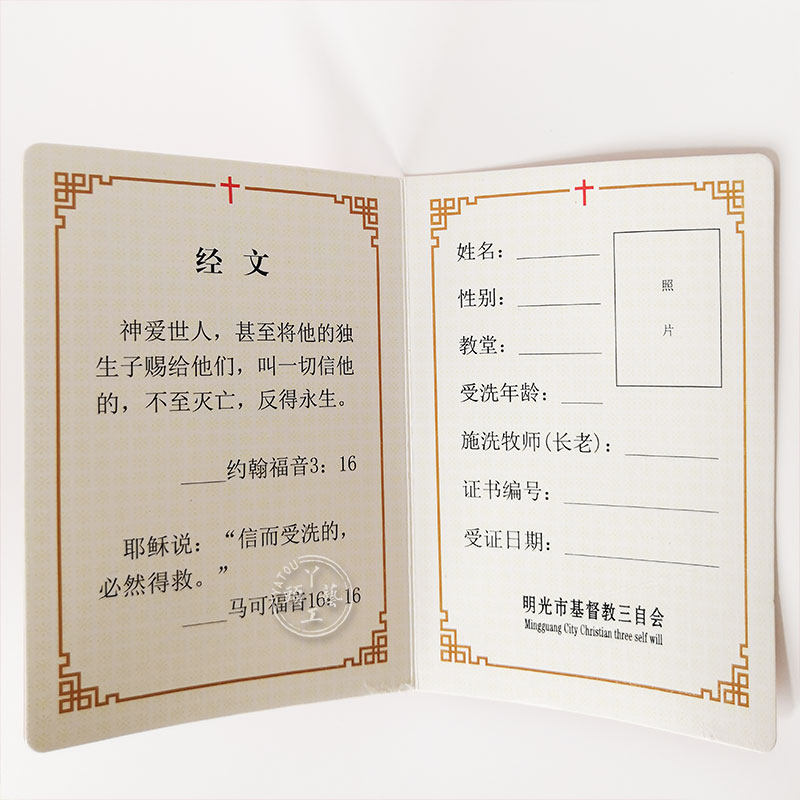 经文
神爱世人，甚至将他的独
生子赐给他们，叫一切信他
的，不至灭亡，反得永生。
___约翰福音3：16
耶稣说：“信而受洗的，
必然得救。”
___马可福音16：16
姓名：
性别：
教堂：
受洗年龄：
施洗牧师(长老)：
证书编号：
受证日期：
照
片
明光市基督教三自会
Mingguang City Christian three self will